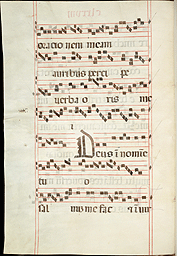 oracio nem meam
auribus perci pe
uerba o ris me
i
Deus i nomīe
tu o
sal uum me fac